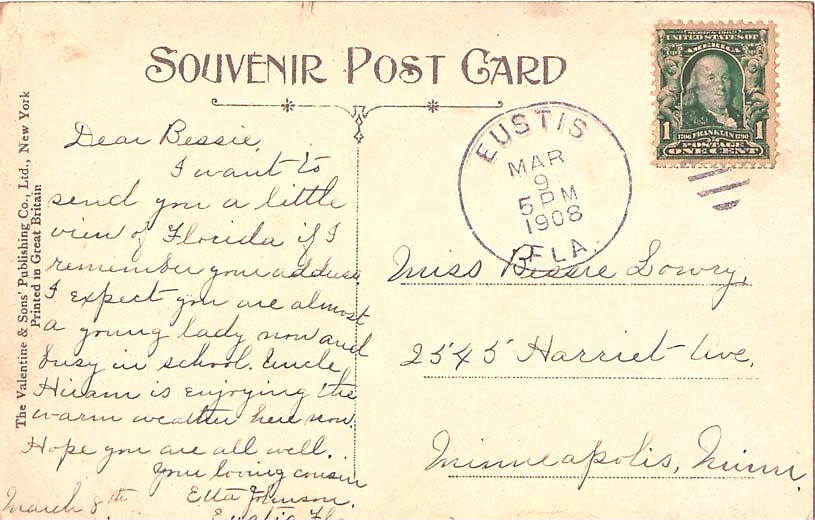 SOUVENIR POST CARD
The Valentine & Sons' Publishing Co., Ltd., New York
Printed in Great Britain
Dear Bessie,
I want to
send you a little
view of Florida if I
remember your address.
I expect you are almost
a young lady now and
busy in school. Uncle
Hiram is enjoying the
warm weather here now.
Hope you are all well.
Your loving cousin
March 8th Etta Johnson.
Eustis Fla
EUSTIS
MAR
9
5 PM
1908
FLA.
SERIES 1902
UNITED STATES OF
AMERICA
1706 FRANKLIN 1790
POSTAGE
1 ONE CENT 1
Miss Bessie Lowry,
2545 Harriet Ave,
Minneapolis, Minn.